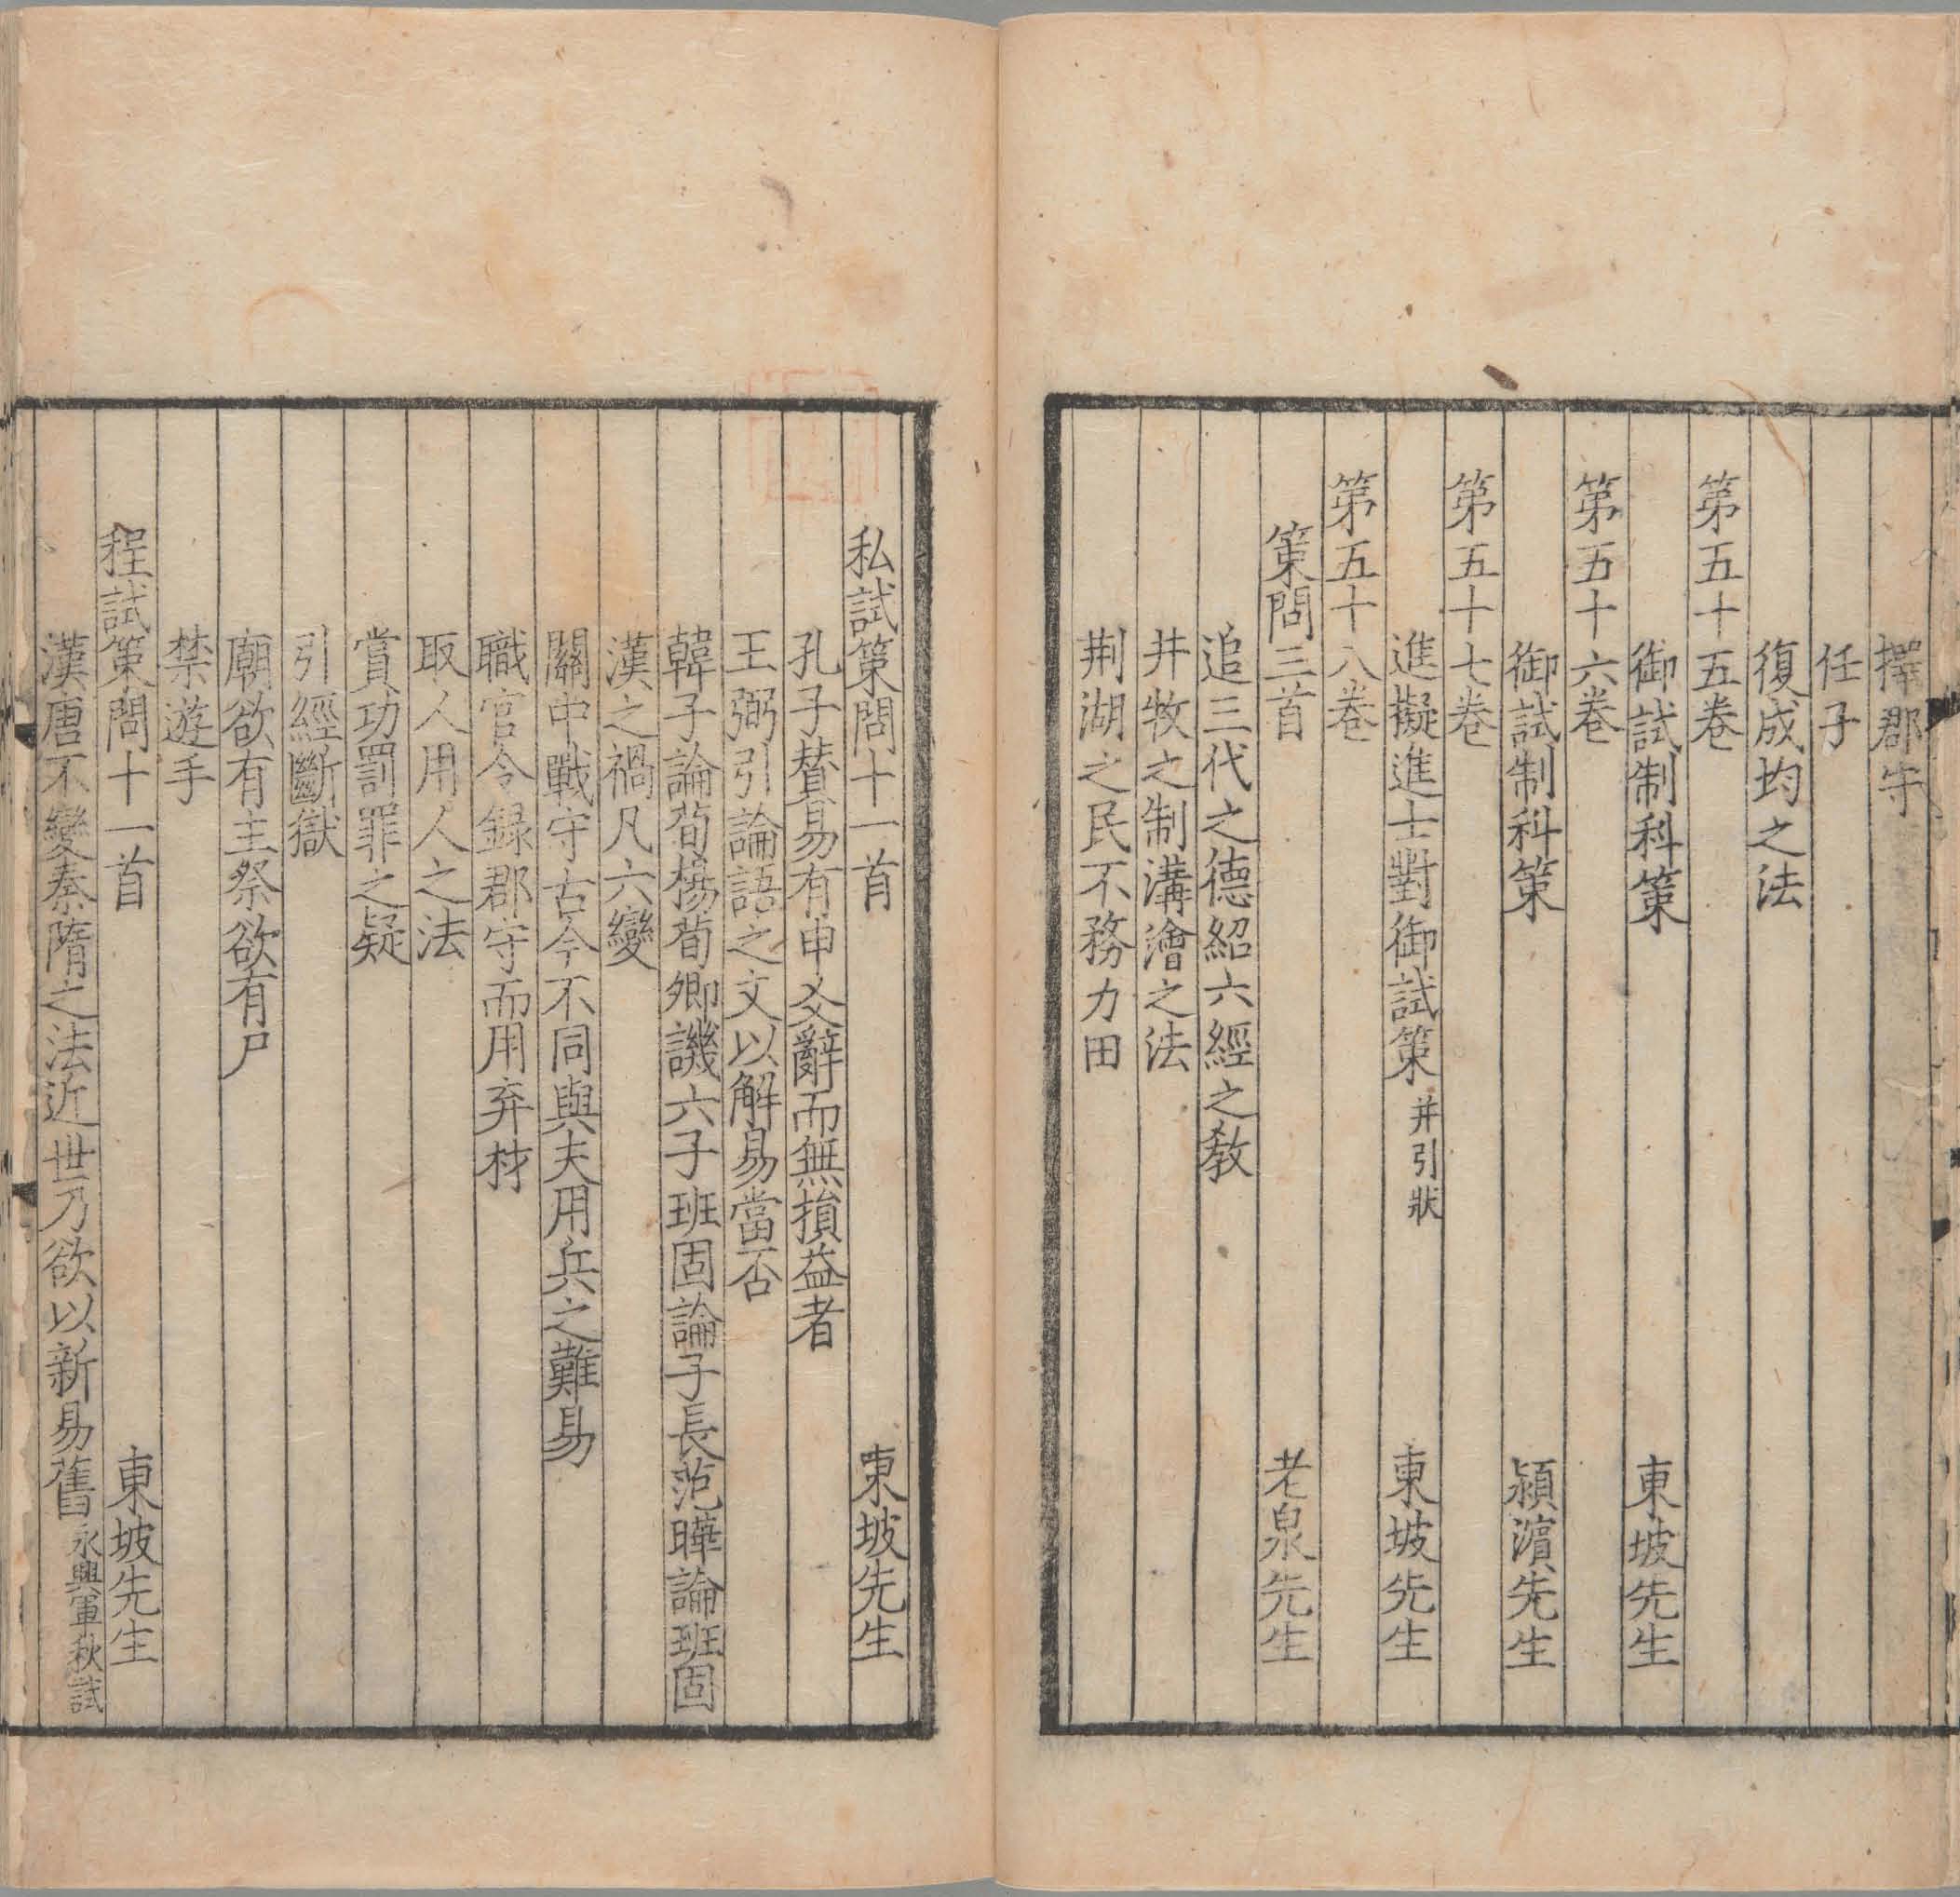 擇郡守
任子
復成均之法
第五十五卷
御試制科策 東坡先生
第五十六卷
御試制科策 潁濵先生
第五十七卷
進擬進士對御試策 并引狀 東坡先生
第五十八卷
策問三首 老泉先生
追三代之德紹六經之敎
井牧之制溝澮之法
荆湖之民不務力田
私試策問十一首 東坡先生
孔子賛易有申爻辭而無損益者
王弼引論語之文以解易當否
韓子論荀楊荀卿譏六子班固論子長范曄論班固
漢之禍凡六變
關中戰守古今不同與夫用兵之難易
職官令録郡守而用弃材
取人用人之法
賞功罰罪之疑
引經斷獄
廟欲有主祭欲有尸
禁遊手
程試策問十一首 東坡先生
漢唐不變秦隋之法近世乃欲以新易舊 永興軍秋試